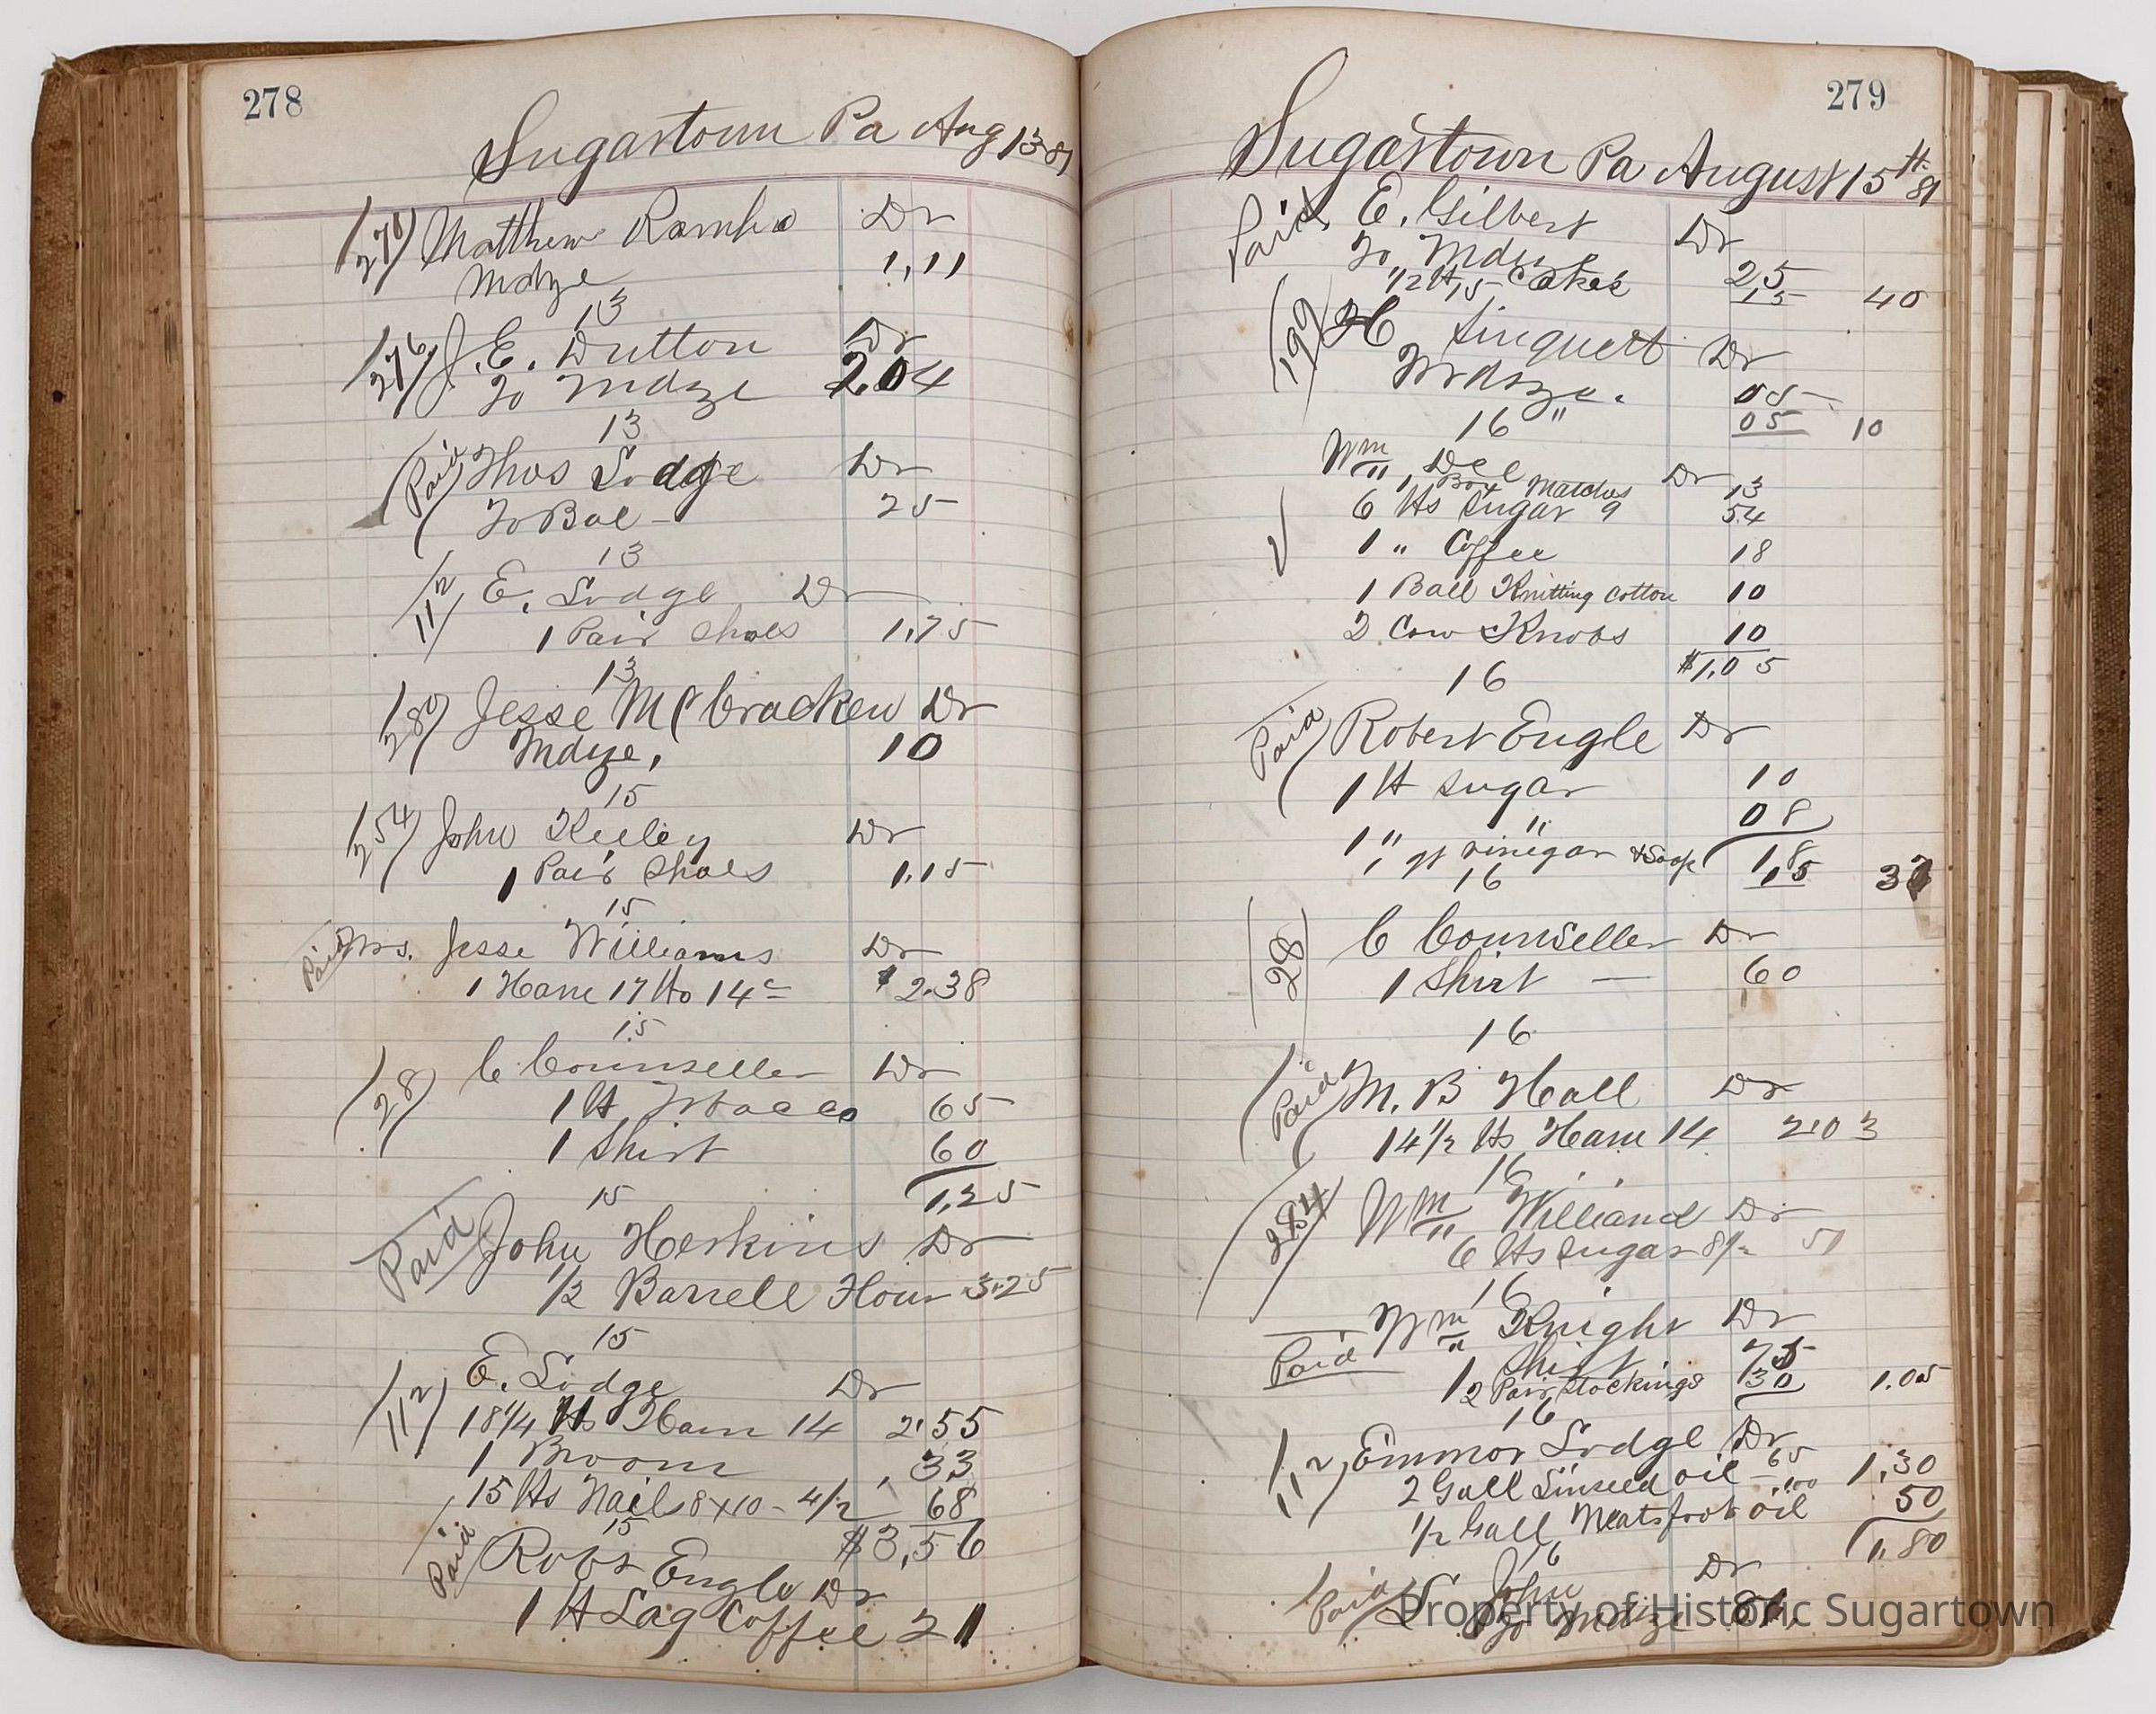 278
Sugartown Pa Aug 13 81
278) Matthew Rambo Dr
Mdze 1,11
13
276) J. E. Dutton Dr
To Mdze 2.04
13
Paid) Thos Lodge Dr
To Bal - 25
13
112/ E. Lodge Dr
1 Pair Shoes 1.75
13
280) Jesse McCracken Dr
Mdze, 10
15
254) John Keeley Dr
1 Pair Shoes 1.15
15
Paid Mrs. Jesse Williams Dr
1 Ham 17 lbs 14c $ 2.38
15
(28) C Counseller Dr
1 lb Tobacco 65
1 Shirt 60
15 1,25
Paid John Herkins Dr
1/2 Barrell Flour 3.25
15
112) E. Lodge Dr
18 1/4 lbs Ham 14 2.55
1 Broom ,33
15 lbs Nails 8x10 - 4 1/2 68
15 $3,56
Paid Robt Engle Dr
1 lb Lag Coffee 21
279
Sugartown Pa August 15th 81
Paid E. Gilbert Dr
To Mdze 25
1/2 lb, 15 Cakes 15 40
(199) H Dr
Mdsze. 05
16 " 05 10
Wm Del Dr
1 Box Matches 13
6 lbs Sugar 9 54
✓ 1 " Coffee 18
1 Ball Knitting Cotton 10
2 Cow Knobs 10
16 $1,05
Paid) Robert Engle Dr
1 lb Sugar 10
1 " " 08
1 qt vinegar & Soap 1,85
16 37
(28) C Counseller Dr
1 Shirt — 60
16
(Paid) M. B Hall Dr
14 1/2 lbs Ham 14 2.03
16
284) Wm Williams Dr
6 lbs Sugar 8 1/2 51
16
Paid Wm Knight Dr
1 Shirt 75
2 Pair Stockings 30 1.05
16
112) Emmor Lodge Dr
2 Gall Linseed oil - 65 1,30
1/2 Gall Neatsfoot oil 100 50
16 1,80
Paid John Dr
To Mdze
Property of Historic Sugartown